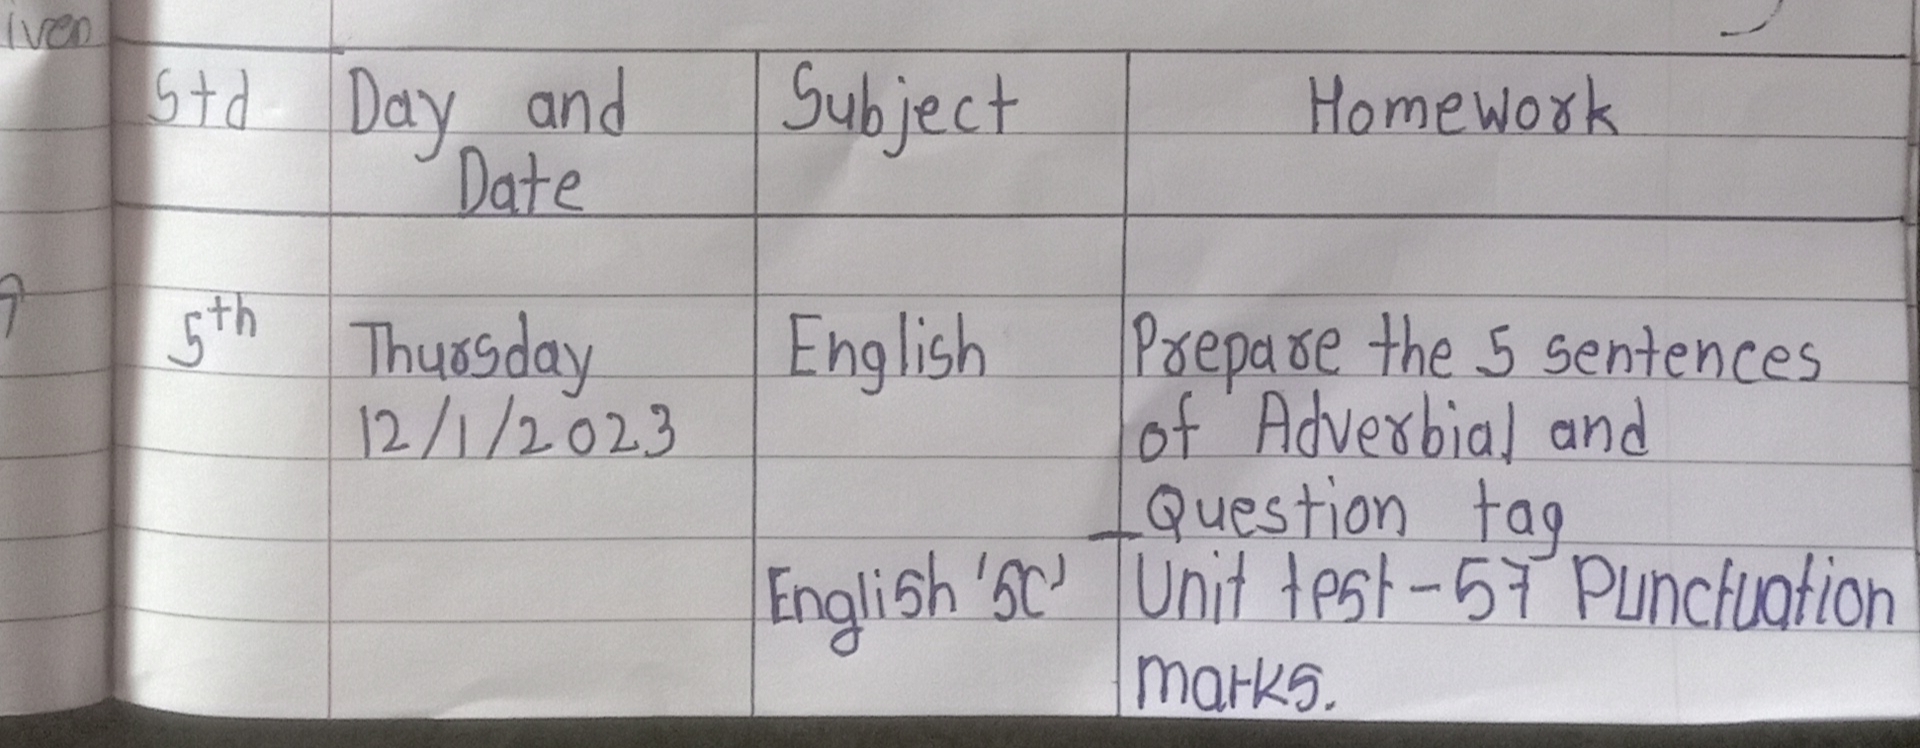 iven
Std Day and Subject Homework
Date
5th Thursday English Prepare the 5 sentences
12/1/2023 of Adverbial and
Question tag
English '5C' Unit test-57 Punctuation
marks.